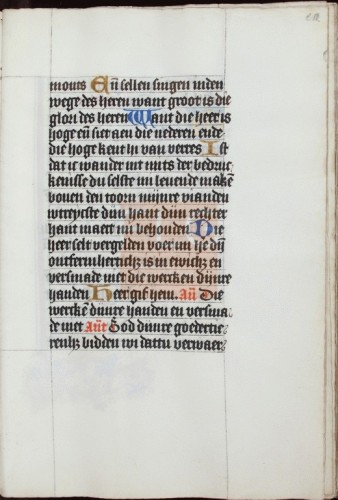 monts Eñ sellen singen inden
wege des heren want groot is die
glori des heren Want die heer is
hoge eñ siet aen die nederen ende
die hoge kent hi van verres Ist
dat ic wander int mits der bedruc
kenisse du selste mi leuende makē
bouen den toorn mijnre vianden
wtreycste dijn hant dijn rechter
hant maect mi behouden Die
heer selt vergelden voer mi he dijn
ontfermherticheit is in ewicheit en
versmade niet die wercken dijnre
handen Heer gif hem. Añ Die
werckē dijnre handen en versma
de niet Añt God dijnre goedertie
renheit bidden wi dattu verwaer